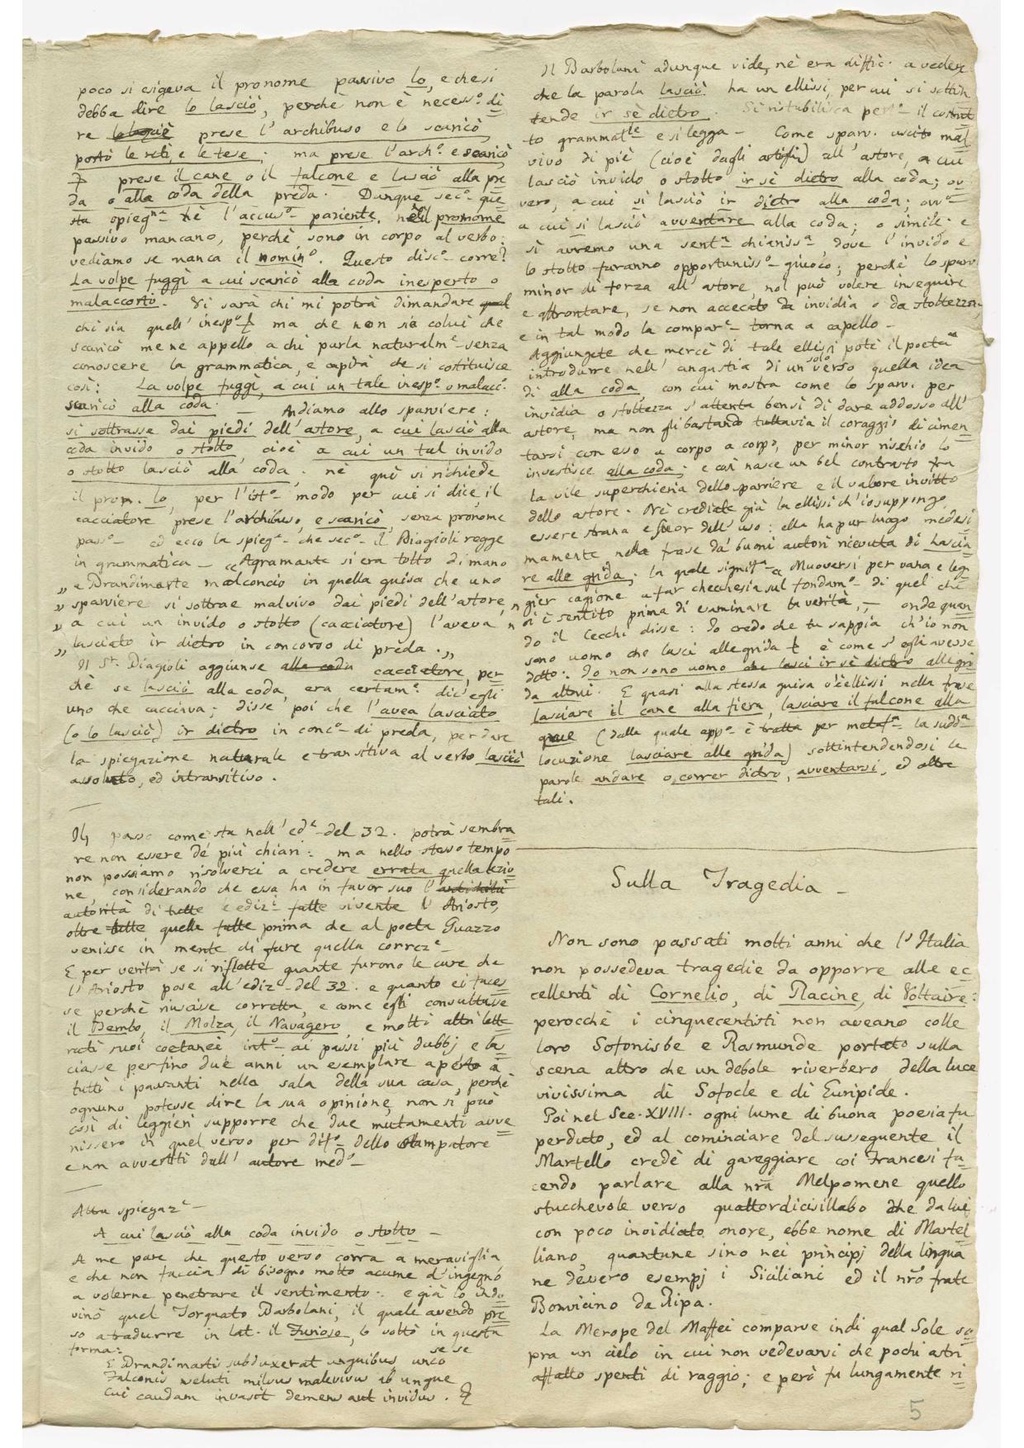 poco si esigeva il pronome passivo lo, e che si
debba dire lo lasciò, perchè non è necess.º di
re prese l'archibuso e lo scaricò,
portò le reti, e le tese; ma prese l'arch.º e scaricò
prese il cane o il falcone e lasciò alla pre
da o alla coda della preda. Dunque sec.º que
sta spieg.ne nè l'accus.º paziente, nè il pronome
passivo mancano, perchè sono in corpo al verbo:
vediamo se manca il nomin.º Questo disc.º corre?
La volpe fuggì a cui scaricò alla coda inesperto o
malaccorto. Vi sarà chi mi potrà dimandare
chi sia quell' inesp.º ma che non sia colui che
scaricò me ne appello a chi parla naturalm.e senza
conoscere la grammatica, e capirà che si costituisce
così: La volpe fuggì, a cui un tale inesp.º o malacc.
scaricò alla coda. — Andiamo allo sparviere:
si sottrasse dai piedi dell'astore, a cui lasciò alla
coda invido o stolto, cioè a cui un tal invido
o stolto lasciò alla coda; nè quì si richiede
il pron. lo, per l'ist.º modo per cui si dice, il
cacciatore prese l'archibuso, e scaricò, senza pronome
pass.º — ed ecco la spieg.ne che sec.º il Biagioli regge
in grammatica — „Agramante si era tolto di mano
„ a Brandimarte malconcio in quella guisa che uno
„ sparviere si sottrae malvivo dai piedi dell'astore,
„ a cui un invido o stolto (cacciatore) l'aveva
„ lasciato ir dietro in concorso di preda.„
Il S.r Biagioli aggiunse cacciatore, per
chè se lasciò alla coda, era certam.e dic'egli
uno che cacciava: disse poi che l'avea lasciato
(o lo lasciò) ir dietro in conc.º di preda, per dare
la spiegazione naturale e transitiva al verbo lasciò
assoluto, ed intransitivo.
Il passo come sta nell'ed.e del 32. potrà sembra
re non essere de' più chiari: ma nello stesso tempo
non possiamo risolverci a credere errata quella lezio
ne, considerando che essa ha in favor suo l'
autorità di tutte l'ediz.i fatte vivente l'Ariosto,
oltre tutte quelle fatte prima che al poeta Guazzo
venisse in mente di fare quella correz.e
E per verità se si riflette quante furono le cure che
l'Ariosto pose all'ediz.e del 32. e quanto ei faces
se perchè riuscisse corretta, e come egli consultasse
il Bembo, il Molza, il Navagero, e molti altri lette
rati suoi coetanei int.º ai passi più dubbj e la
sciasse perfino due anni un esemplare aperto a
tutti i passanti nella sala della sua casa, perchè
ognuno potesse dire la sua opinione, non si può
così di leggieri supporre che due mutamenti avve
nissero in quel verso per dif.º dello stampatore
e non avvertiti dall'autore med.º
Altra spiegaz.e
A cui lasciò alla coda invido o stolto —
A me pare che questo verso corra a meraviglia
e che non faccia di bisogno molto acume d'ingegno
a volerne penetrare il sentimento: e già lo indo
vinò quel Torquato Barbolani, il quale avendo pre
so a tradurre in lat. il Furioso, lo voltò in questa
forma:
se se
E Brandimarti subduxerat unguibus unco
Falconis veluti milvus malevivus ab ungue
Cui caudam invasit demens aut invidus.
Il Barbolani adunque vide, nè era diffic. a vedere
che la parola lasciò ha un ellissi, per cui si sottin
tende ir sè dietro. Si ristabilisca per.º il costrut
to grammat.le e si legga — Come sparv. uscito mal
vivo di piè (cioè dagli artigli) all'astore, a cui
lasciò invido o stolto ir sè dietro alla coda; ov
vero, a cui si lasciò ir dietro alla coda; ovv.º
a cui si lasciò avventare alla coda; o simile: e
si avremo una sent.a chiariss.a dove l'invido e
lo stolto faranno opportuniss.º giuoco; perchè lo sparv.
minor di forza all'astore nol può volere inseguire
e affrontare, se non accecato da invidia o da stoltezza,
e in tal modo la compar.e torna a capello —
Aggiungete che mercè di tale ellissi potè il poeta
introdurre nell'angustia di un solo verso quella idea
di alla coda, con cui mostra come lo sparv. per
invidia o stoltezza s'attenta bensì di dare addosso all'
astore, ma non gli bastando tuttavia il coraggio di cimen
tarsi con esso a corpo a corpo, per minor rischio lo
investisce alla coda; e così nasce un bel contrasto fra
la vile superchieria dello sparviere e il valore invitto
dello astore. Nè crediate già la ellissi ch'io suppongo
essere strana e fuor dell'uso: ella ha pur luogo medesi
mamente nella frase da' buoni autori ricevuta di lascia
re alle grida; la quale signif.a „Muoversi per vana e leg
gier cagione a far checchesia sul fondam.º di quel che
si è sentito prima di esaminare la verità„ — onde quan
do il Cecchi disse: Io credo che tu sappia ch'io non
sono uomo che lasci alle grida è come s'egli avesse
detto: Io non sono uomo che lasci ir sè dietro alle gri
da altrui. E quasi alla stessa guisa è l'ellissi nella frase
lasciare il cane alla fiera, lasciare il falcone alla
grue (dalla quale app.º è tratta per metaf.a la sudd.a
locuzione lasciare alle grida) sottintendendosi le
parole andare o correr dietro, avventarsi, ed altre
tali.
Sulla Tragedia —
Non sono passati molti anni che l'Italia
non possedeva tragedie da opporre alle ec
cellenti di Cornelio, di Racine, di Voltaire:
perocchè i cinquecentisti non aveano colle
loro Sofonisbe e Rosmunde portato sulla
scena altro che un debole riverbero della luce
vivissima di Sofocle e di Euripide.
Poi nel Sec. XVIII. ogni lume di buona poesia fu
perduto, ed al cominciare del susseguente il
Martello credè di gareggiare coi Francesi fa
cendo parlare alla nrã Melpomene quello
stucchevole verso quattordicisillabo che da lui
con poco invidiato onore, ebbe nome di Martel
liano, quantunque sino nei principj della lingua
ne dèvero esempj i Siciliani ed il nr̃o frate
Bonvicino da Ripa.
La Merope del Maffei comparve indi qual Sole so
pra un cielo in cui non vedevansi che pochi astri
affatto spenti di raggio; e però fu lungamente ri
5